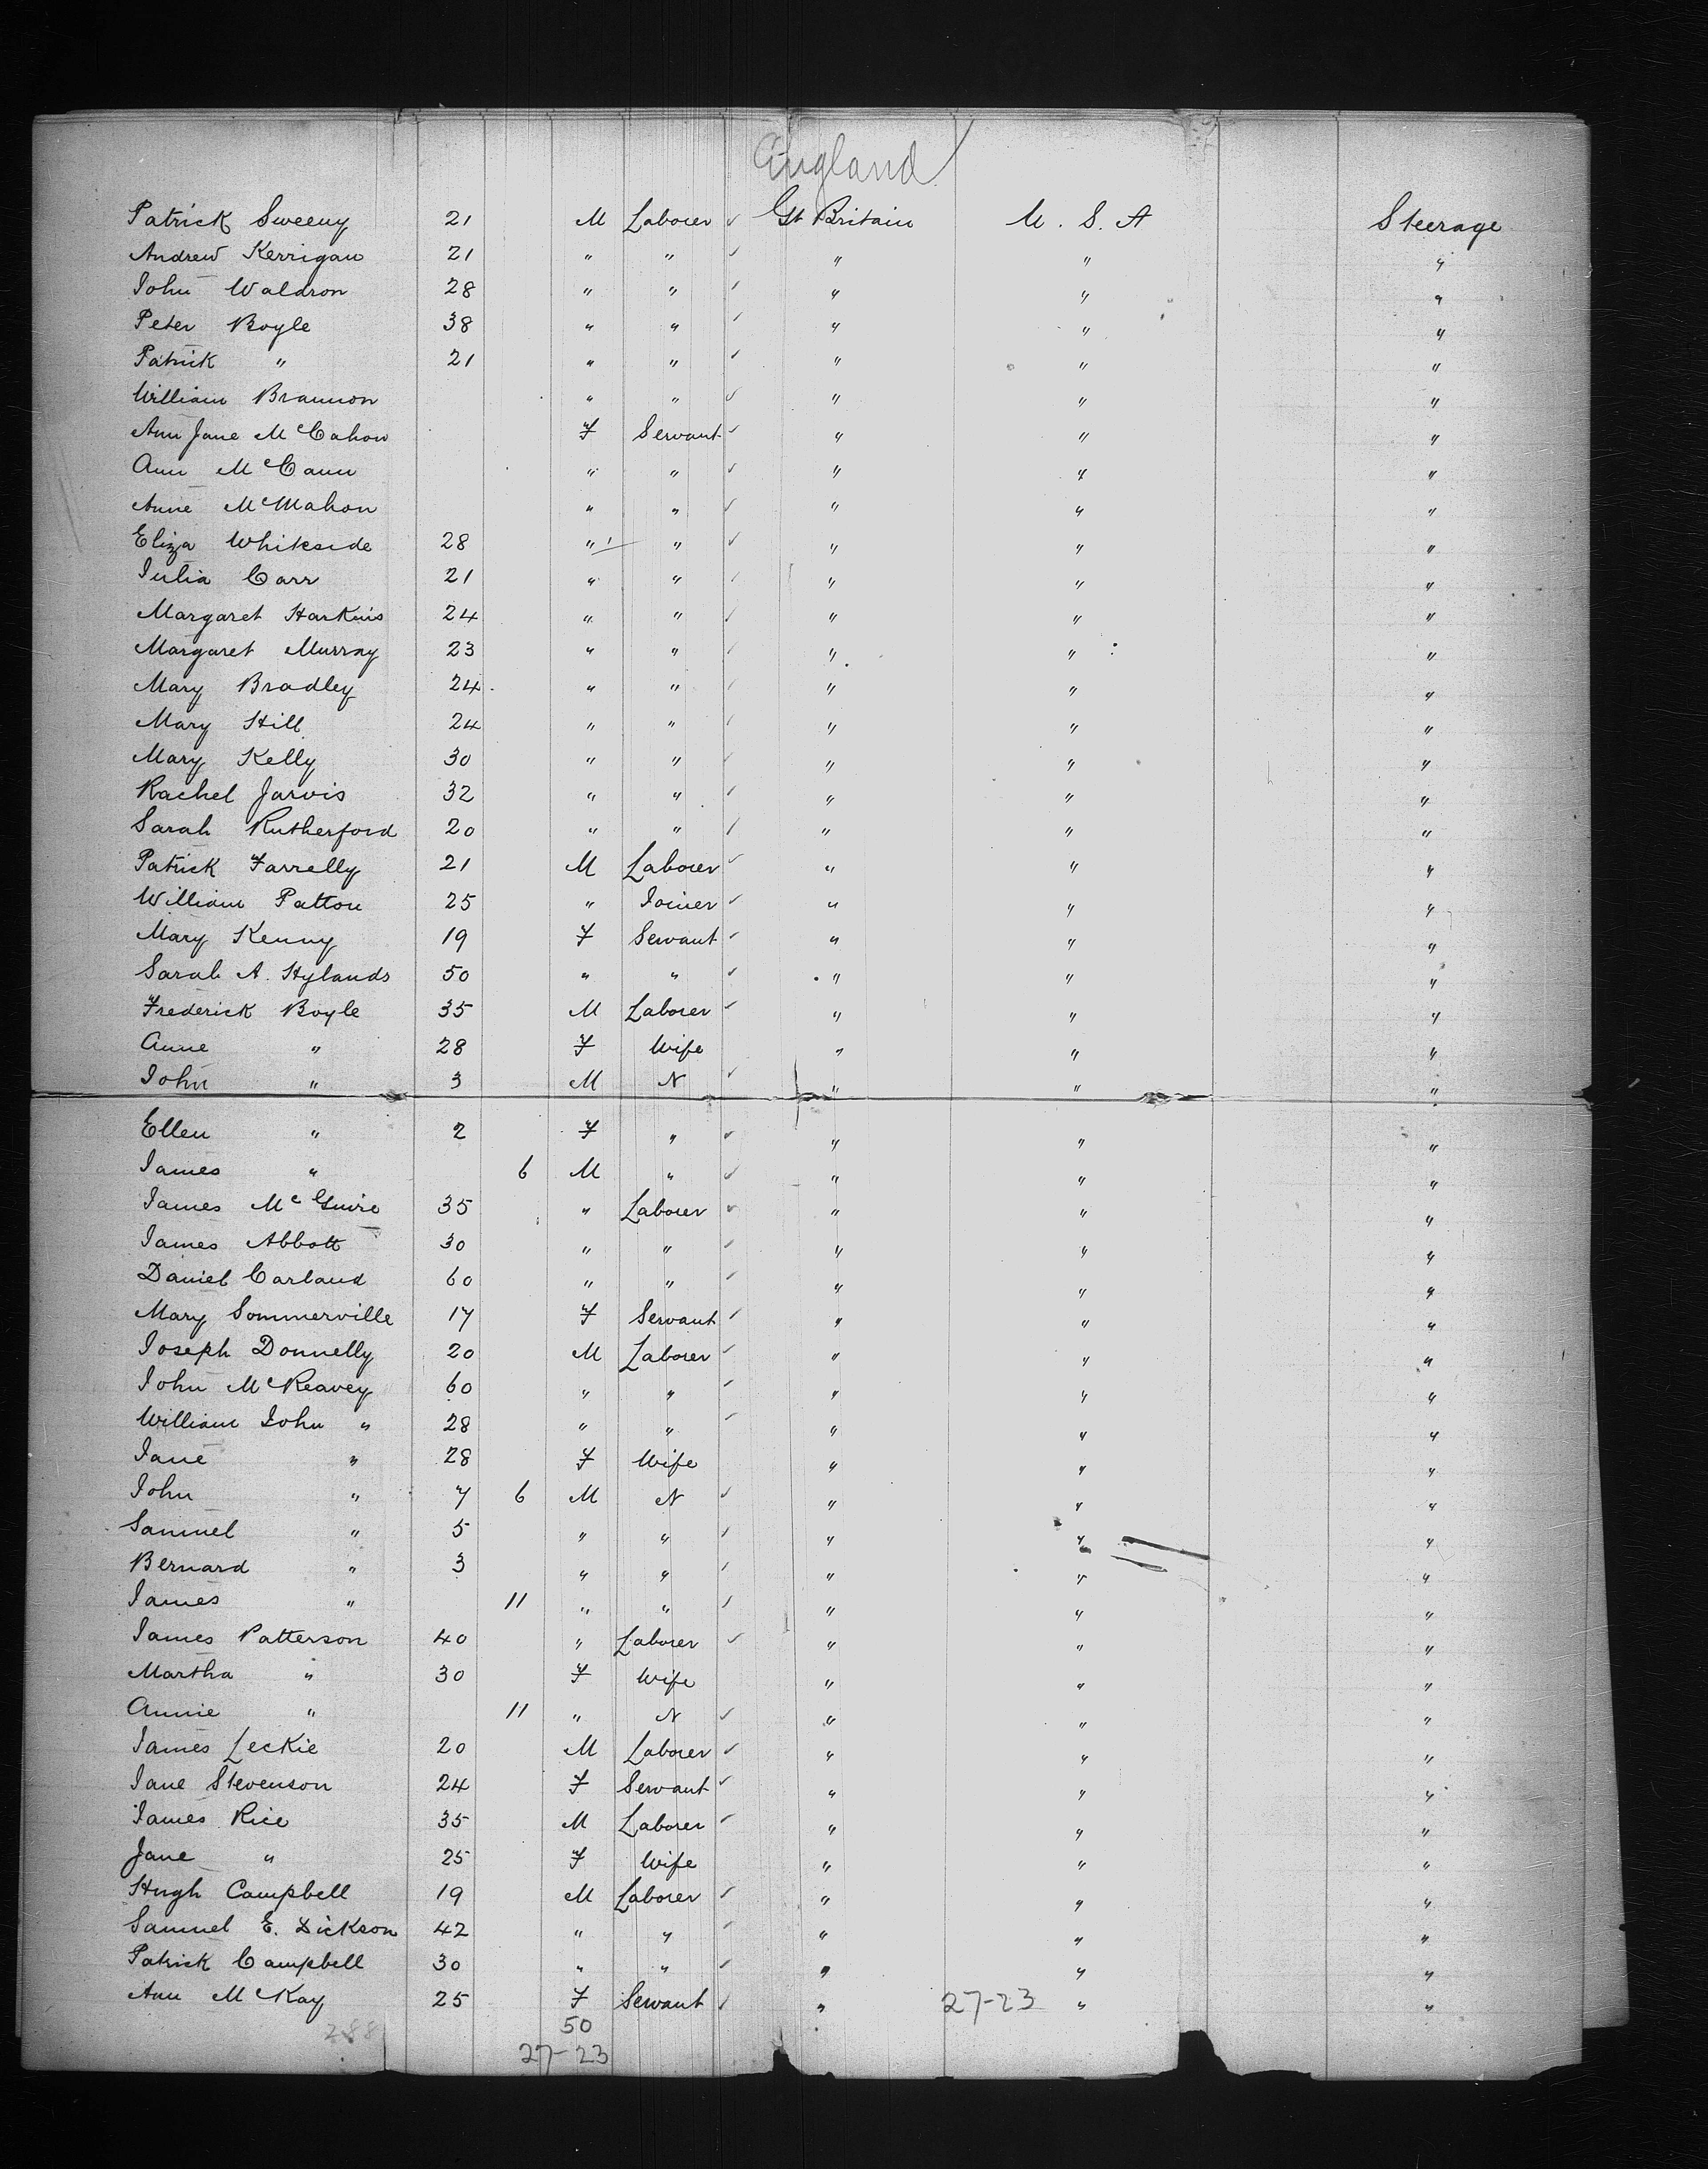 England
Patrick Sweeny 21 M Laborer ✓ Gt Britain U. S. A Steerage
Andrew Kerrigan 21 " " ✓ " " "
John Waldron 28 " " ✓ " " "
Peter Boyle 38 " " ✓ " " "
Patrick " 21 " " ✓ " " "
William Brannon " " ✓ " " "
Ann Jane McCahon F Servant ✓ " " "
Ann McCann " " ✓ " " "
Anne McMahon " " ✓ " " "
Eliza Whiteside 28 " " ✓ " " "
Julia Carr 21 " " ✓ " " "
Margaret Harkins 24 " " ✓ " " "
Margaret Murray 23 " " ✓ " " "
Mary Bradley 24 " " ✓ " " "
Mary Hill 24 " " ✓ " " "
Mary Kelly 30 " " ✓ " " "
Rachel Jarvis 32 " " ✓ " " "
Sarah Rutherford 20 " " ✓ " " "
Patrick Farrelly 21 M Laborer ✓ " " "
William Patton 25 " Joiner ✓ " " "
Mary Kenny 19 F Servant ✓ " " "
Sarah A. Hylands 50 " " ✓ " " "
Frederick Boyle 35 M Laborer ✓ " " "
Anne " 28 F Wife " " "
John " 3 M N ✓ " " "
Ellen " 2 F " ✓ " " "
James " 6 M " ✓ " " "
James McGuire 35 " Laborer ✓ " " "
James Abbott 30 " " ✓ " " "
Daniel Carland 60 " " ✓ " " "
Mary Sommerville 17 F Servant ✓ " " "
Joseph Donnelly 20 M Laborer ✓ " " "
John McReavey 60 " " ✓ " " "
William John " 28 " " ✓ " " "
Jane " 28 F Wife " " "
John " 7 6 M N ✓ " " "
Samuel " 5 " " ✓ " " "
Bernard " 3 " " ✓ " " "
James " 11 " " ✓ " " "
James Patterson 40 " Laborer ✓ " " "
Martha " 30 F Wife " " "
Annie " 11 " N ✓ " " "
James Leckie 20 M Laborer ✓ " " "
Jane Stevenson 24 F Servant ✓ " " "
James Rice 35 M Laborer ✓ " " "
Jane " 25 F Wife " " "
Hugh Campbell 19 M Laborer ✓ " " "
Samuel E. Dickson 42 " " ✓ " " "
Patrick Campbell 30 " " ✓ " " "
Ann McKay 25 F Servant ✓ " 27-23 " "
288 50
27-23